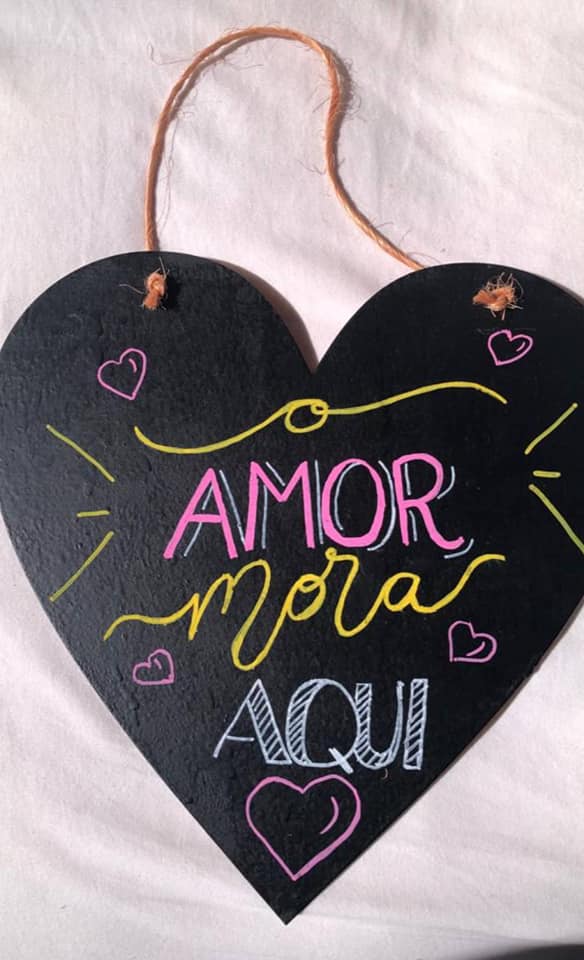 o
AMOR
mora
AQUI